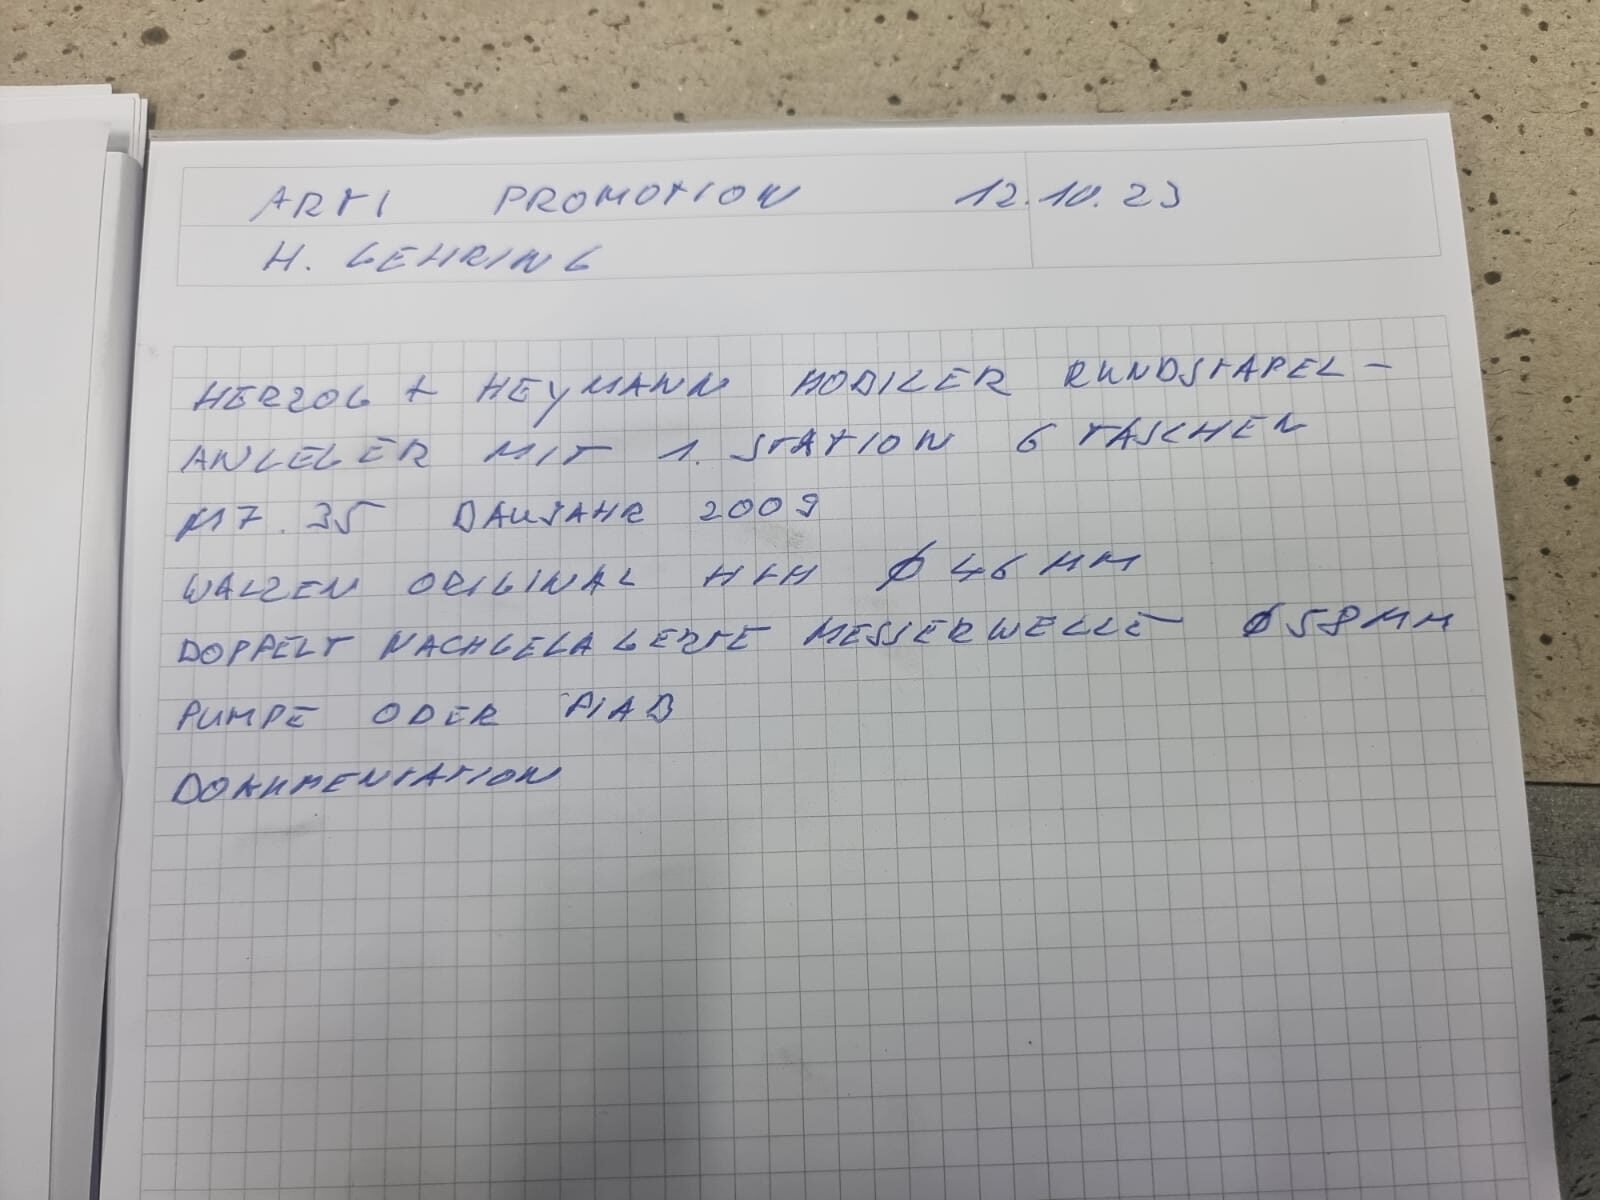 ARTI PROMOTION 12.10.23
H. GEHRING
HERZOG + HEYMANN MOBILER RUNDSTAPEL-
ANLEGER MIT 1. STATION 6 TASCHEN
M7.35 BAUJAHR 2009
WALZEN ORIGINAL H+H Ø 46 MM
DOPPELT NACHGELAGERTE MESSERWELLE Ø 58 MM
PUMPE ODER PIAB
DOKUMENTATION